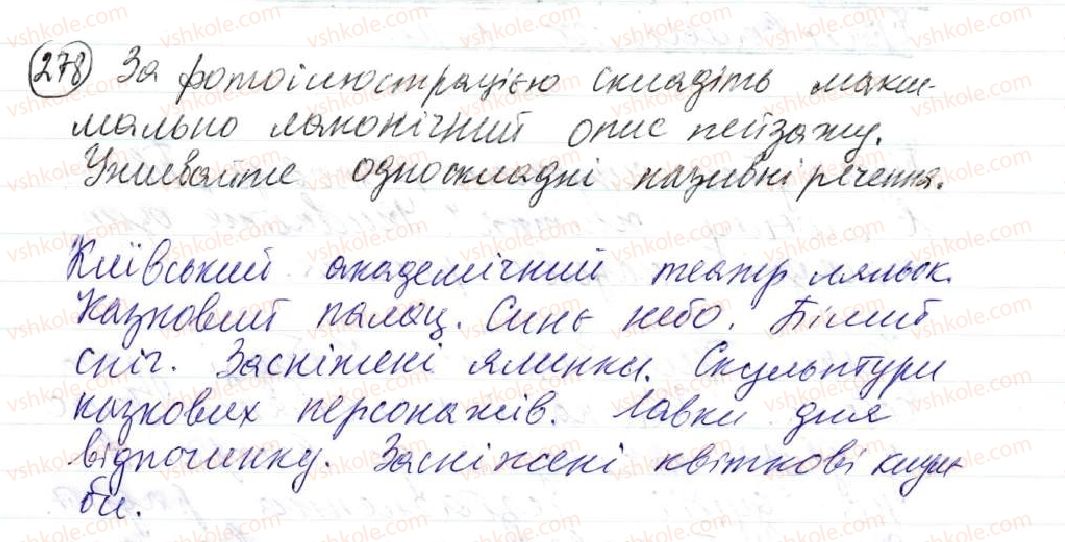 278 За фотоілюстрацією складіть макси-
мально лаконічний опис пейзажу.
Уживайте односкладні називні речення.
Київський академічний театр ляльок.
Казковий палац. Синє небо. Білий
сніг. Засніжені ялинки. Скульптури
казкових персонажів. Лавки для
відпочинку. Засніжені квіткові клум-
би.